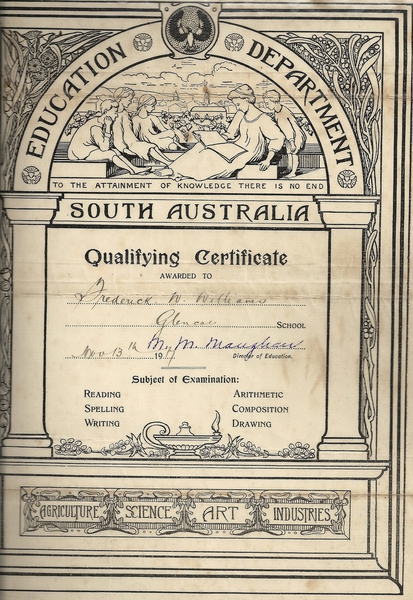 EDUCATION DEPARTMENT
TO THE ATTAINMENT OF KNOWLEDGE THERE IS NO END
SOUTH AUSTRALIA
Qualifying Certificate
AWARDED TO
Frederick W. Williams
Glencoe SCHOOL
Nov 13th 19 M. M. Maughan
Director of Education.
Subject of Examination:
READING ARITHMETIC
SPELLING COMPOSITION
WRITING DRAWING
AGRICULTURE SCIENCE ART INDUSTRIES